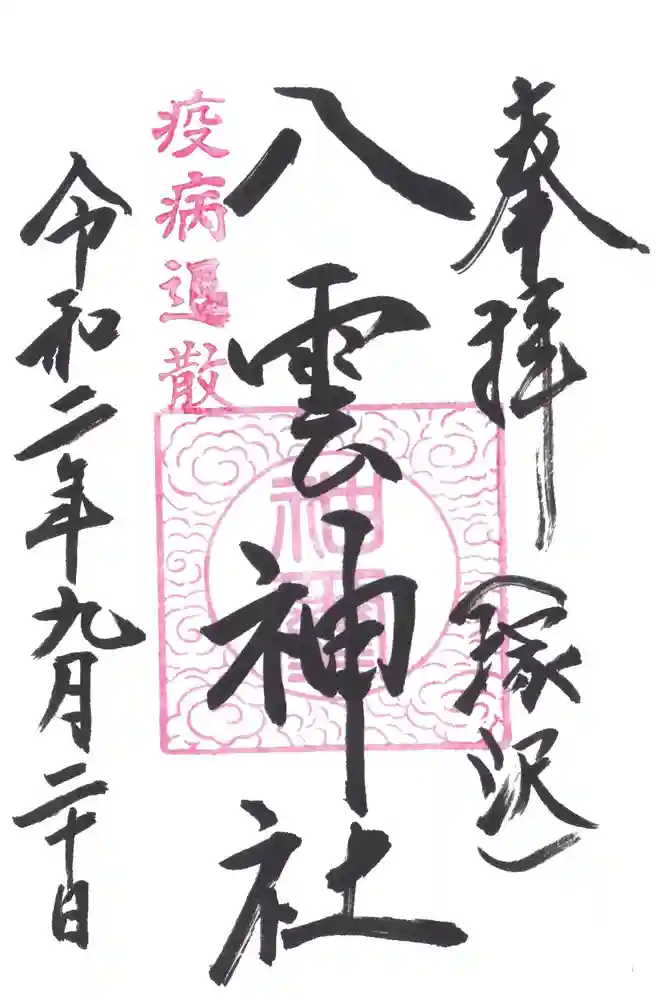 奉拝
(塚沢)
八雲神社
疫病退散
神璽
令和二年九月二十日